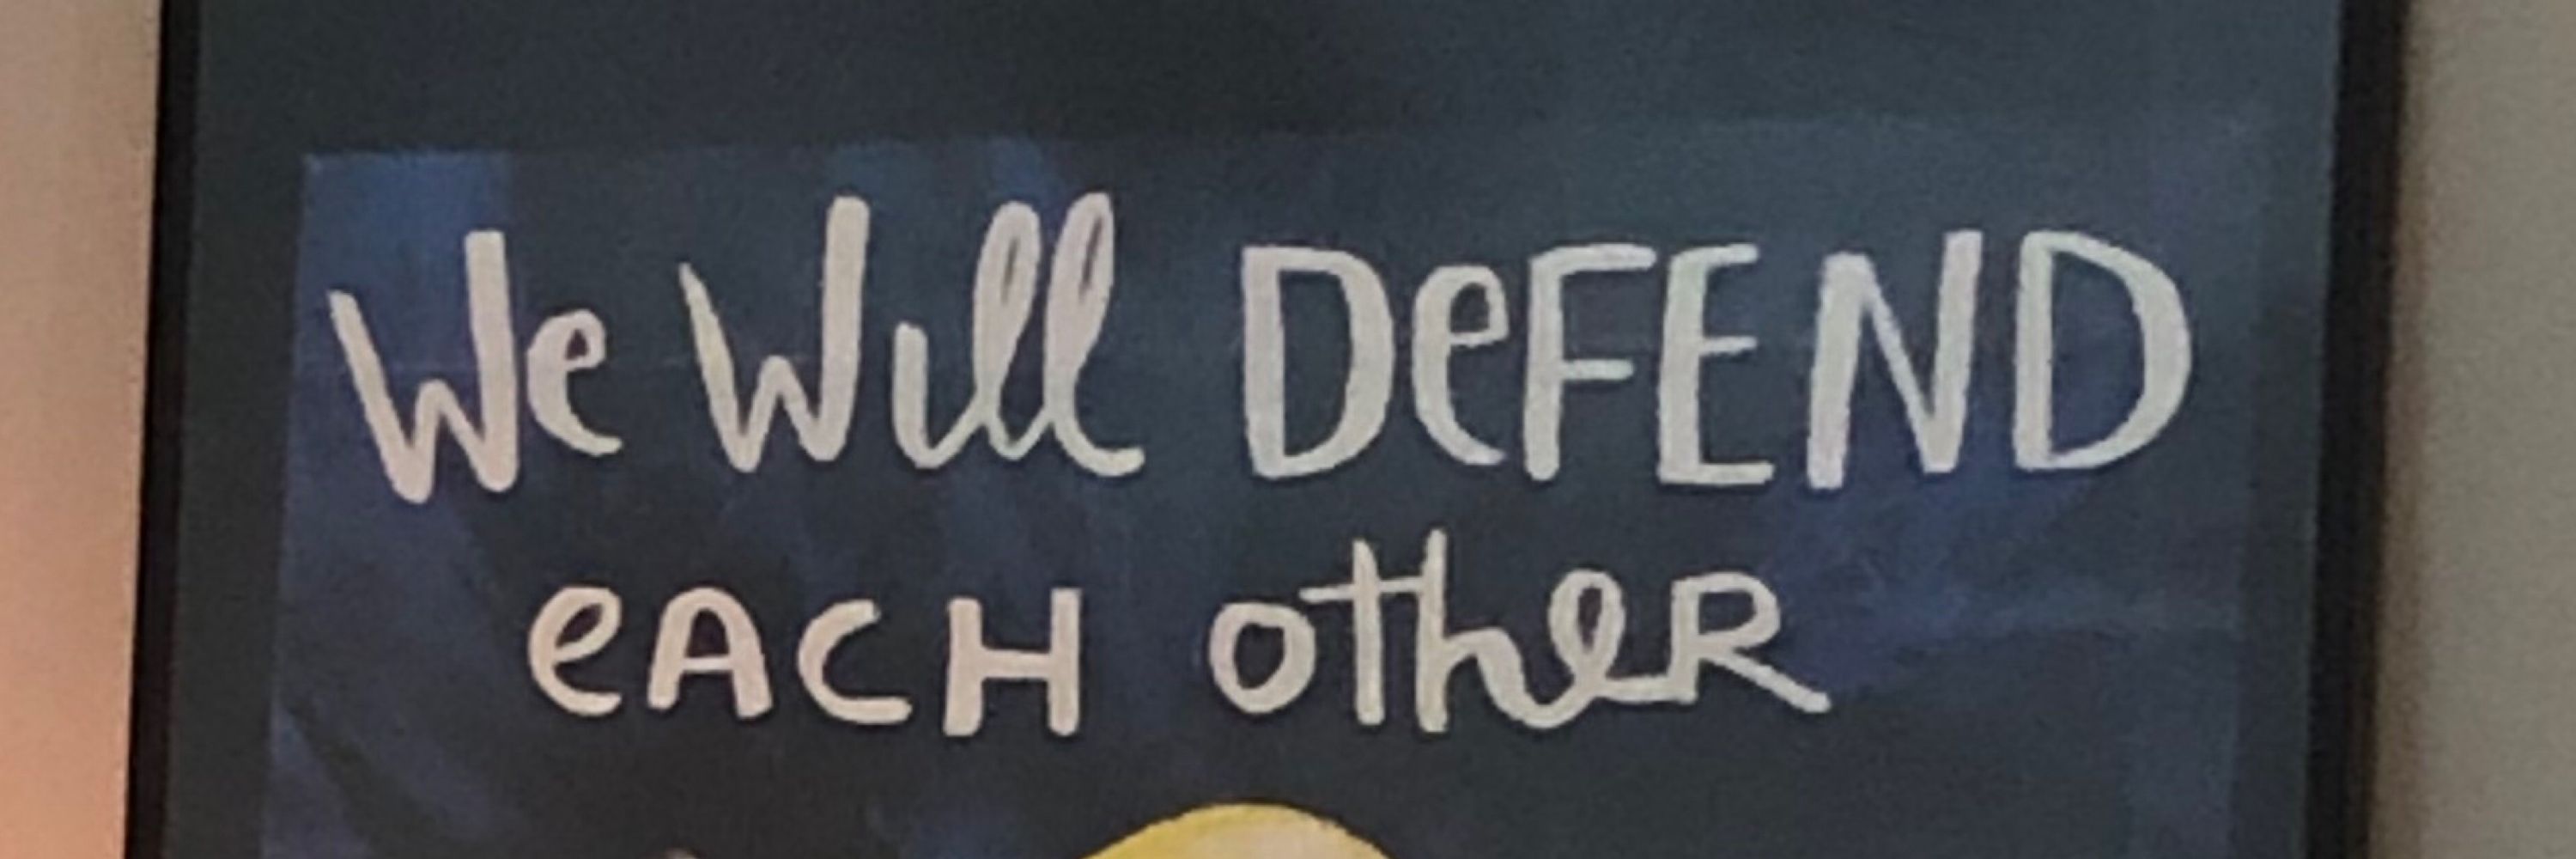 We Will DeFEND
eACH otheR